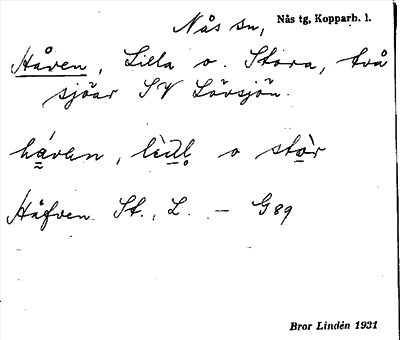 Nås sn, Nås tg, Kopparb. l.
Håven, Lilla o. Stora, två
sjöar SV Lövsjön.
håven, o stor
Håfven St., L. – G 89
Bror Lindén 1931